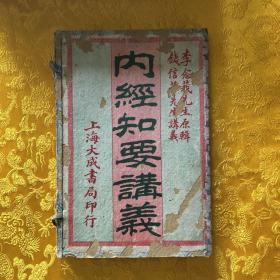 李念莪先生原輯
錢信先生講義
內經知要講義
上海大成書局印行